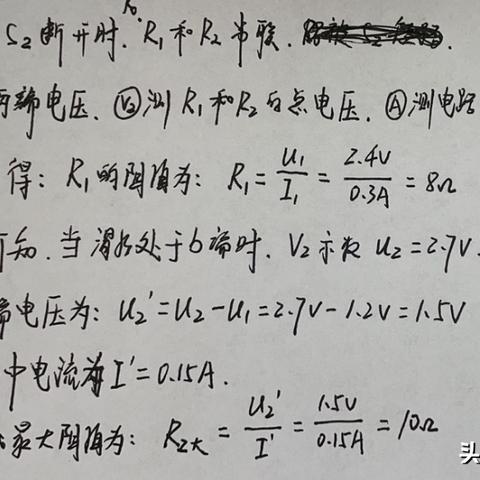 R₀.
S₂断开时. R₁和R₂串联.
两端电压. V₂测R₁和R₂的总电压. A测电路
得: R₁的阻值为: R₁ = U₁/I₁ = 2.4V/0.3A = 8Ω
可知. 当滑片处于b端时. V₂示数 U₂=2.7V.
端电压为: U₂'=U₂-U₁=2.7V-1.2V=1.5V
中电流为I'=0.15A.
最大阻值为: R₂大 = U₂'/I' = 1.5V/0.15A = 10Ω
头